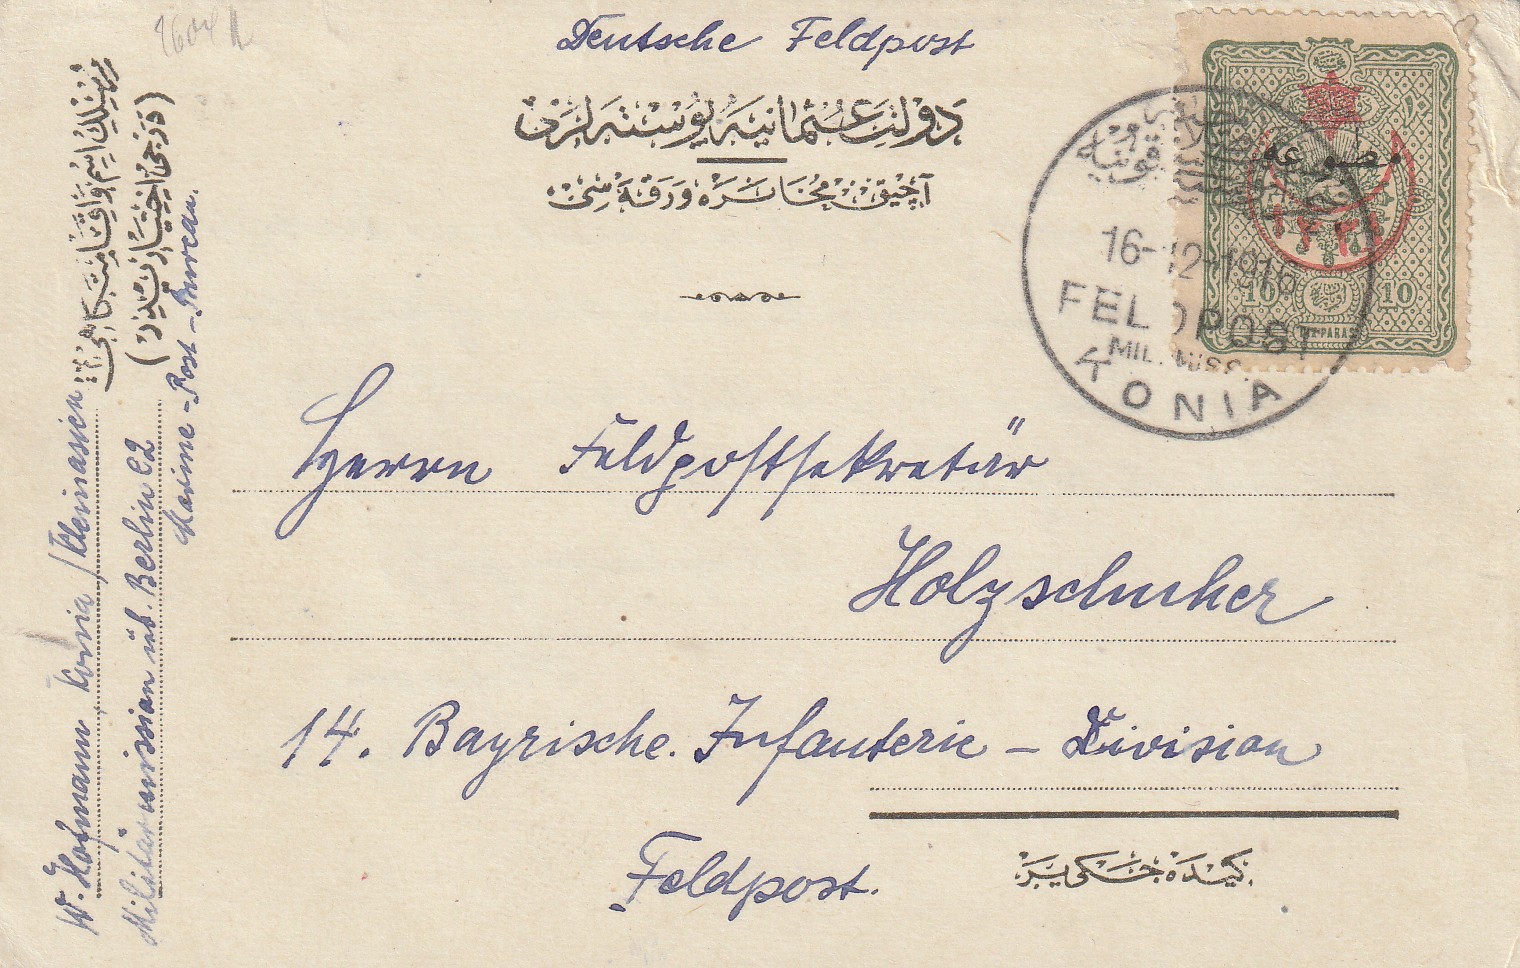 Deutsche Feldpost
دولت عثمانیه پوسته لری
آچیق مخابره ورقه سی
مطبوعه
١٣٣١
10 10
16-12-1916
FELDPOST
MIL. MISS.
KONIA
Herrn Feldpostsekretär
Holzschuher
14. Bayrische. Infanterie - Division
Feldpost.
كیده جكی یر
W. Hofmann Konia / Kleinasien
Militärmission üb. Berlin C2
Marine-Post-Bureau.